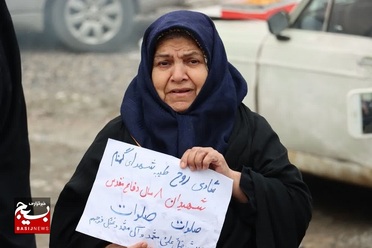 شادی روح طیبه شهدای گمنام
شهیدان ۸ سال دفاع مقدس
صلوات صلوات
خبرگزاری
بسیج
BASIJNEWS